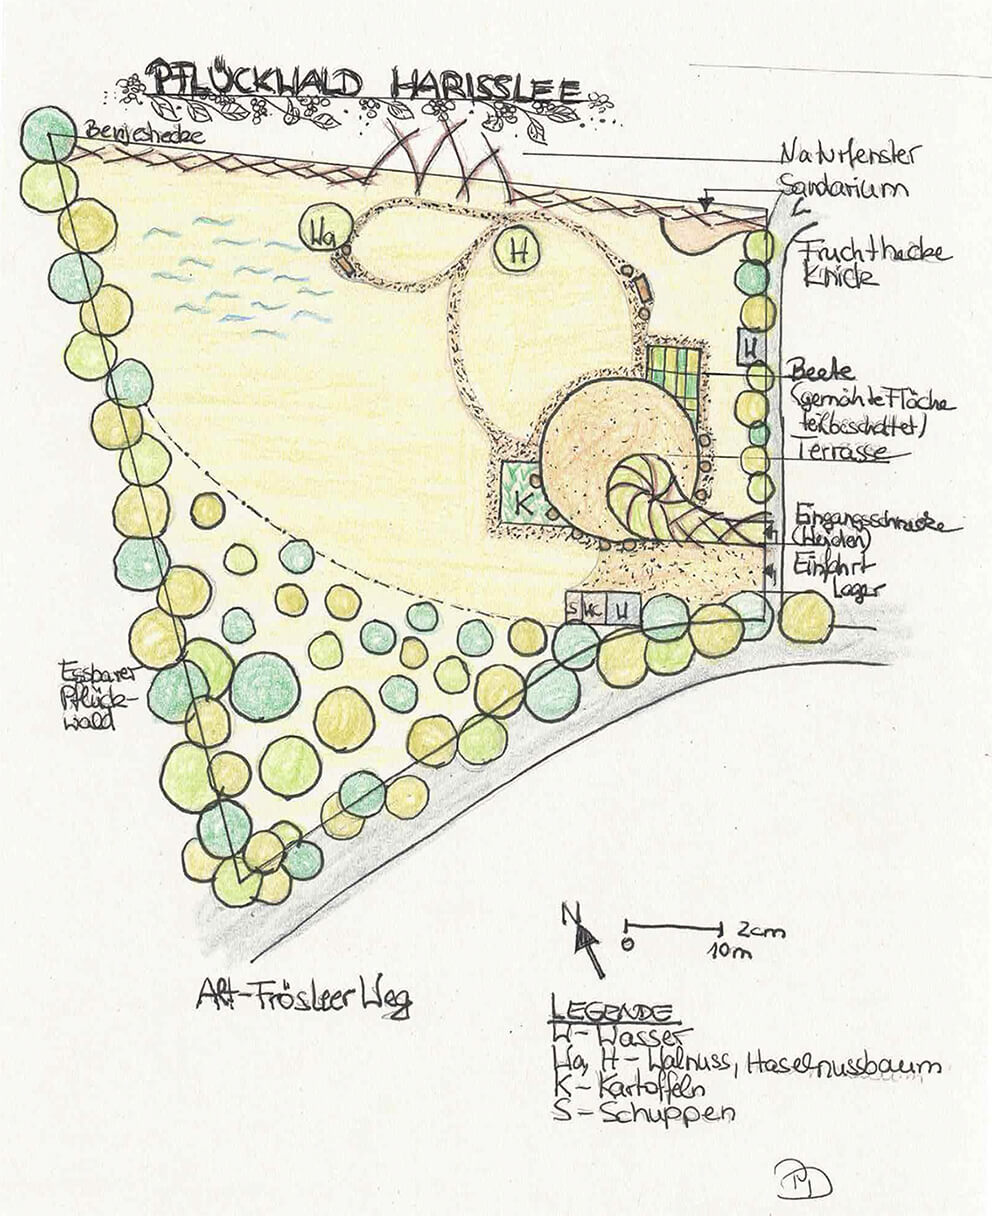 PFLÜCKWALD HARISSLEE
Benjeshecke
Naturfenster
Sandarium
Wa
H
Fruchthecke
Knick
W
Beete
(gemähte Fläche
teilbeschattet)
Terrasse
K
Eingangsschnecke
(Weiden)
Einfahrt
Lager
S WC W
Essbarer
Pflück-
wald
N
0
2cm
10m
Alt-Frösleer Weg
LEGENDE
W - Wasser
Wa, H - Walnuss, Haselnussbaum
K - Kartoffeln
S - Schuppen